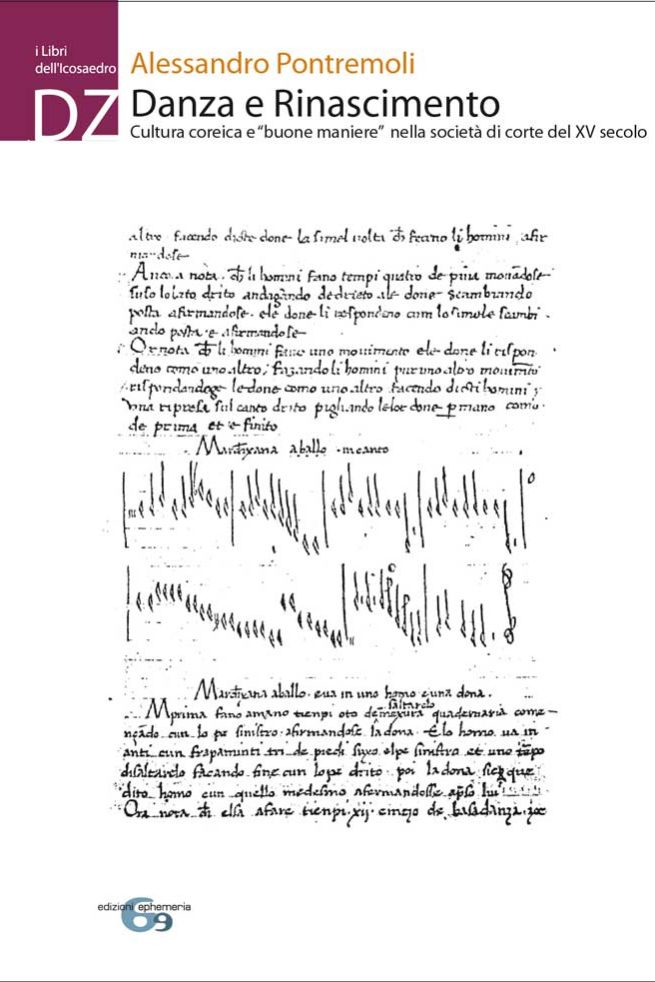 i Libri
dell'Icosaedro
DZ
Alessandro Pontremoli
Danza e Rinascimento
Cultura coreica e "buone maneire" nella società di corte del XV secolo
altro facendo dicte done la simel volta
Ancora nota. li homini fano tempi quatro de piua
suso lo lato drito andagando dedrieto ale done scambiando
posta afirmandose. ele done li respondeno cum lo simele
ando posta e afirmandose
Or nota li homini fano uno movimento ele done li rispon
deno como uno altro, fazando li homini pur uno altro
rispondandoge le done como uno altro facendo dicti homini
una ripresa sul canto drito pigliando le lor done p mano como
de prima et e finito
a ballo
a ballo. e va in uno homo e una dona.
saltarelo
M prima fano a mano tienpi oto de mexura quadernaria come
nçado cun lo pe sinistro. afirmandose la dona. E lo homo va in
anti cun tri de piedi el pe sinistro et uno
di saltarelo facando fine cun lo pe drito. poi la dona
dito homo cun quello medesimo afermandosse
Ora nota. ch elsa afare tienpi xij. de basadanza.
edizioni ephemeria
69